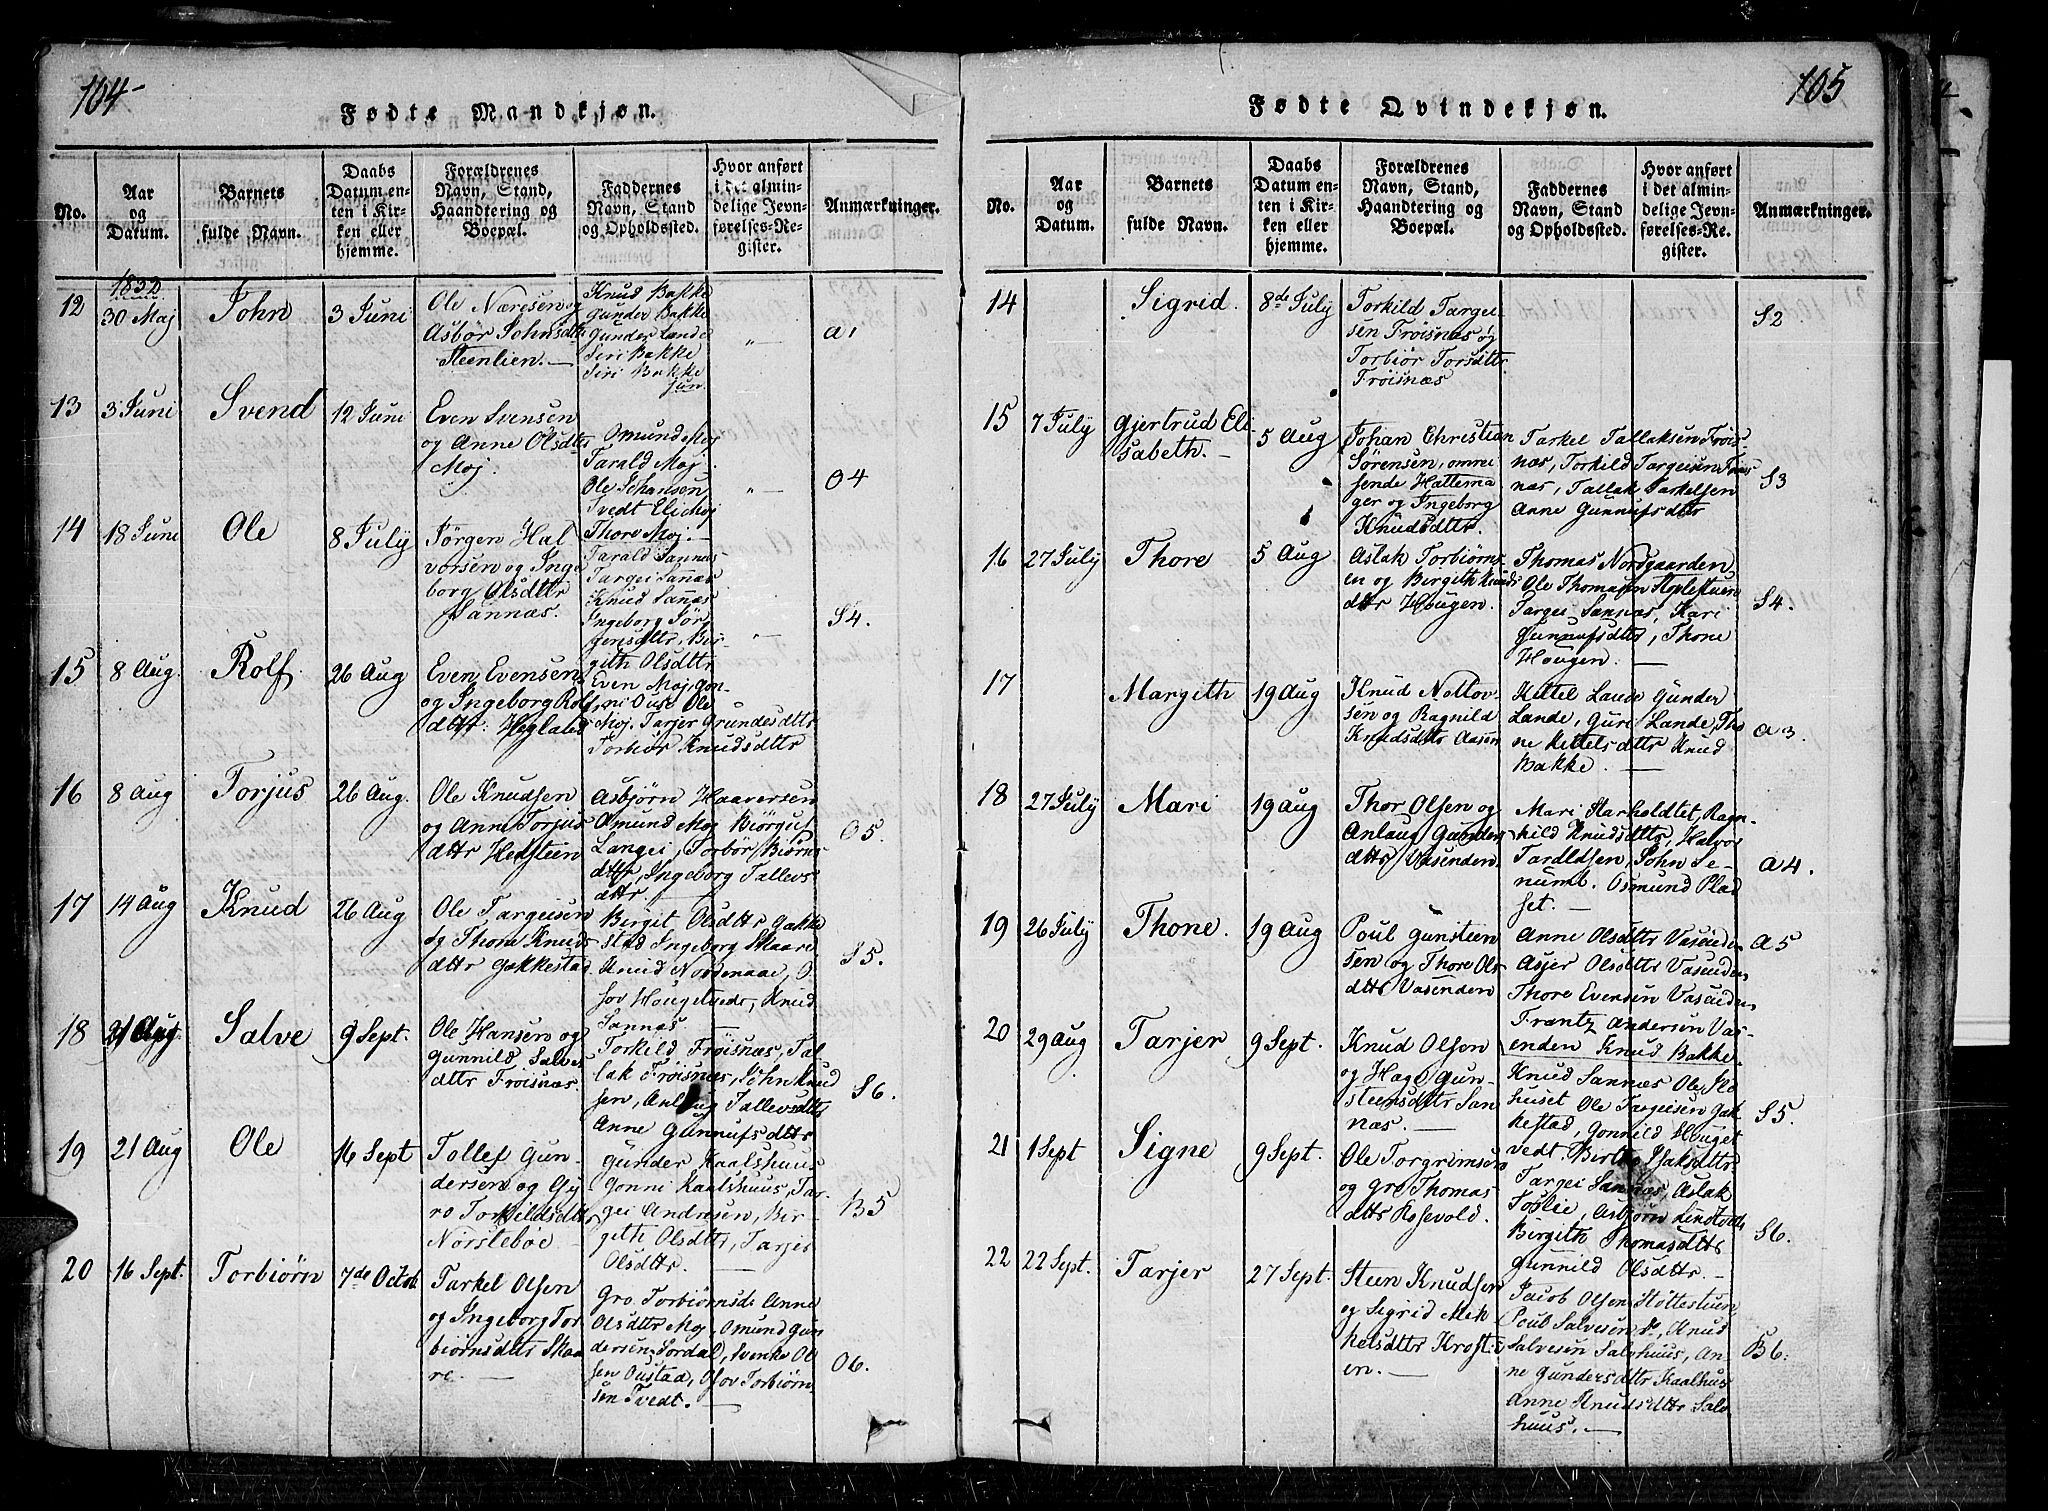 104
Fødte Mandkjøn.
No.
Aar
og
Datum.
Barnets
fulde Navn.
Daabs
Datum en-
ten i Kir-
ken eller
hjemme.
Forældrenes
Navn, Stand,
Haandtering og
Boepæl.
Faddernes
Navn, Stand
og Opholdssted.
Hvor anført
i det almin-
delige Jevn-
førelses-Re-
gister.
Anmærkninger.
1832
12
30 Maj
John
3 Juni
Ole Næresen og
Asbør Johnsdtr
Steenlien.
Knud Bakke
Gunder Bakke
Gunder Lande
Siri Bakke
Siri Bakke
jun.
"
a1
13
3 Juni
Svend
12 Juni
Even Svensen
og Anne Olsdttr
Moj.
Omund Moj
Tarald Moj
Ole Johansen
Tvedt Eli Moj
Thore Moj.
"
O4
14
18 Juni
Ole
8 July
Jørgen Hal
vorsen og Inge
borg Olsdttr
Sannæs.
Tarald Sannæs
Targei Sannæs
Knud Sannæs
Ingeborg Jør
gensdttr, Bir
gith Olsdttr
"
S4.
15
8 Aug.
Rolf
26 Aug
Even Evensen
og Ingeborg Rolf
dttr. Hegland
Even Moj, Gon-
ni Ouse Ole
Moj. Tarjer Grundesdttr
Torbiør Knudsdttr
16
8 Aug
Torjus
26 Aug.
Ole Knudsen
og Anne Torjus
dttr Hegsteen
Asbjørn Haaversen
Amund Moj Biørgul
Langei, Torbør Biørns
dttr, Ingeborg Tallevs
dttr
O5.
17
14 Aug
Knud
26 Aug
Ole Targeisen
og Thore Knuds
dttr Gakkestad
Birgit Olsdttr Gakke
stad Ingeborg Skaare
Knud Nordenaae, O
sov Hougetvedt, Knud
Sannæs
S5.
18
21 Aug
Salve
9 Sept.
Ole Hansen og
Gunnild Salves
dttr Frøisnæs.
Torkild Frøisnæs, Tal
lak Frøisnæs, John Knud
sen, Anlaug Tallevsdttr
Anne Gunnufsdttr
S6.
19
21 Aug
Ole
16 Sept
Tollef Gun-
dersen og Gy
ro Torkildsdttr
Nørsteboe
Gunder Kaalshuus
Gonni Kaalshuus, Tar-
gei Andresen, Bir-
gith Olsdttr, Tarjer
Olsdttr.
B5
20
16 Sept.
Torbiørn
7de Octob
Tarkel Olsen
og Ingeborg Tor
biørnsdttr Skaa
re.
Gro Torbiørnsdr Anne
Olsdttr Moj, Omund Gun
dersen Tordal, Svenke Ol
sen Oustad, Osov Torbiørn
sen Tvedt.
O6.
105
Fødte Qvindekjøn.
No.
Aar
og
Datum.
Barnets
fulde Navn.
Daabs
Datum en-
ten i Kir-
ken eller
hjemme.
Forældrenes
Navn, Stand,
Haandtering og
Boepæl.
Faddernes
Navn, Stand
og Opholdssted.
Hvor anført
i det almin-
delige Jevn-
førelses-Re-
gister.
Anmærkninger.
14
Sigrid.
8de July
Torkild Targei-
sen Frøisnæs og
Torbiør Torsdttr
Frøisnæs
S2
15
7 July
Gjertrud Eli-
sabeth.
5 Aug
Johan Christian
Sørensen, omrei
sende Hattema
ger og Ingeborg
Knudsdttr.
Tarkel Tallaksen Frøis-
næs, Torkild Targeisen Frøis
næs, Tallak Tarkelsen
Anne Gunnufsdttr
S3
16
27 July
Thore
5 Aug
Aslak Torbiørns-
en og Birgith Knuds
dttr Hougen.
Thomas Nordgaarden
Ole Thomassen
Targei Sannæs, Kari
Gunnufsdttr, Thone
Hougen.
S4.
17
Margith
19 Aug
Knud Nottov-
sen og Ragnild
Knudsdttr Aasen
Kittel Lande Gunder
Lande, Guri Lande, Tho
ne Kittelsdttr Knud
Bakke.
a3.
18
27 July
Mari
19 Aug
Thor Olsen og
Anlaug Gunders
dttr Vasenden
Mari Harholdtet, Ragn-
hild Knudsdttr, Halvor
Taraldsen, John Se-
numt. Osmund Plad
set.
a4.
19
26 July
Thone.
19 Aug
Poul Gunstein
sen og Thore Ols
dttr Vasenden
Anne Olsdttr Vasenden
Asjer Olsdttr Vasenden
Thore Evensen Vasenden
Frantz Andersen Vas-
enden Knud Bakke.
a5
20
29 Aug
Tarjer
9 Sept.
Knud Olsen
og Hage Gun-
steensdttr San
næs.
Knud Sannæs Ole Mo
huset Ole Targeisen Gak
kestad, Gonnild Houget
vedt. Birthe Isaksdttr
S5.
21
1 Sept
Signe
9 Sept.
Ole Torgrimsen
og Gro Thomas
dttr Rosevold.
Targei Sannæs, Aslak
Foslie, Asbjørn Lindtvedt
Birgith Thomasdttr
Gunnild Olsdttr.
S6.
22
22 Sept.
Tarjer
27 Sept.
Steen Knudsen
og Sigrid Mik
kelsdttr Krost-
en.
Jacob Olsen Støttesteen
Poul Salvesen do, Knud
Salvesen Salvhuus, An-
ne Gundersdttr Kaalhuus
Anne Knudsdttr Salv-
huus.
B6.